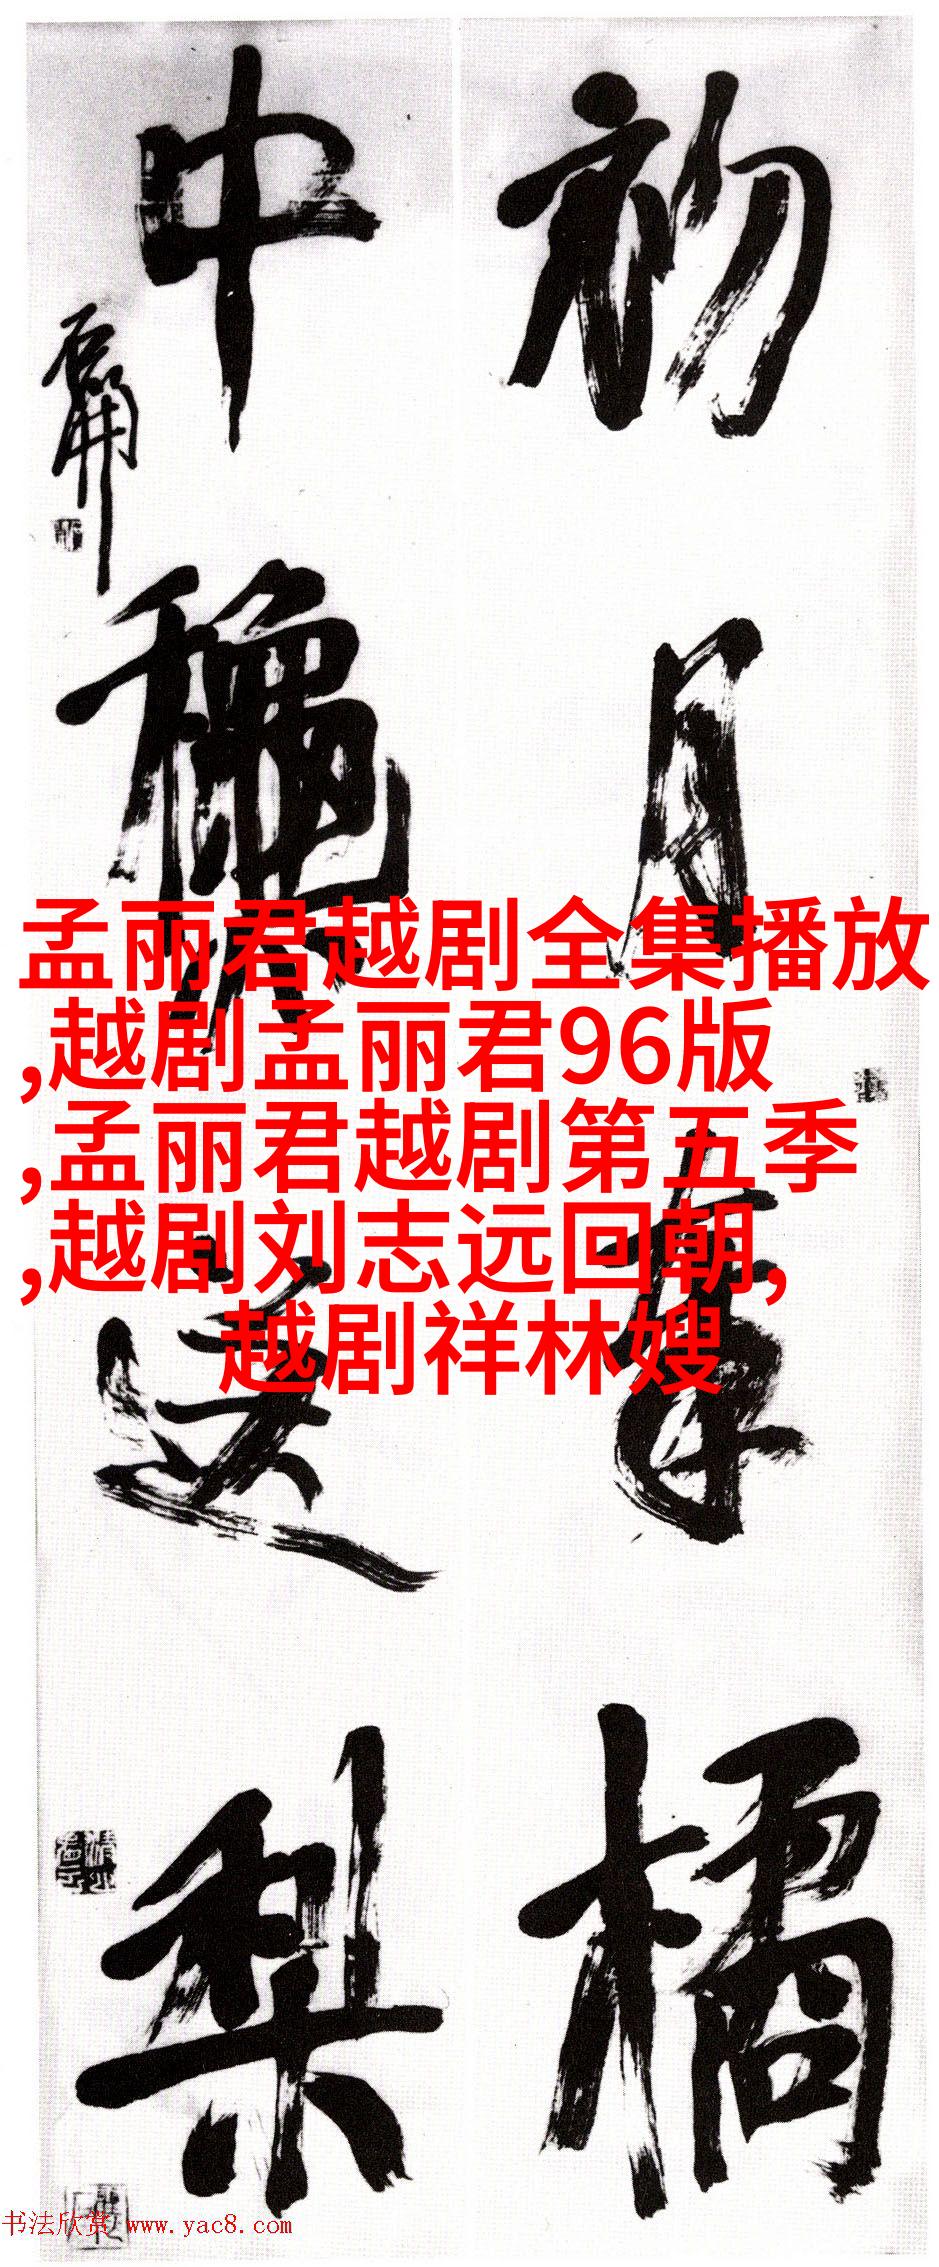 初月橘
中梨
孟丽君越剧全集播放
,越剧孟丽君96版
,孟丽君越剧第五季
,越剧刘志远回朝,
越剧祥林嫂
书法欣赏 www.yac8.com